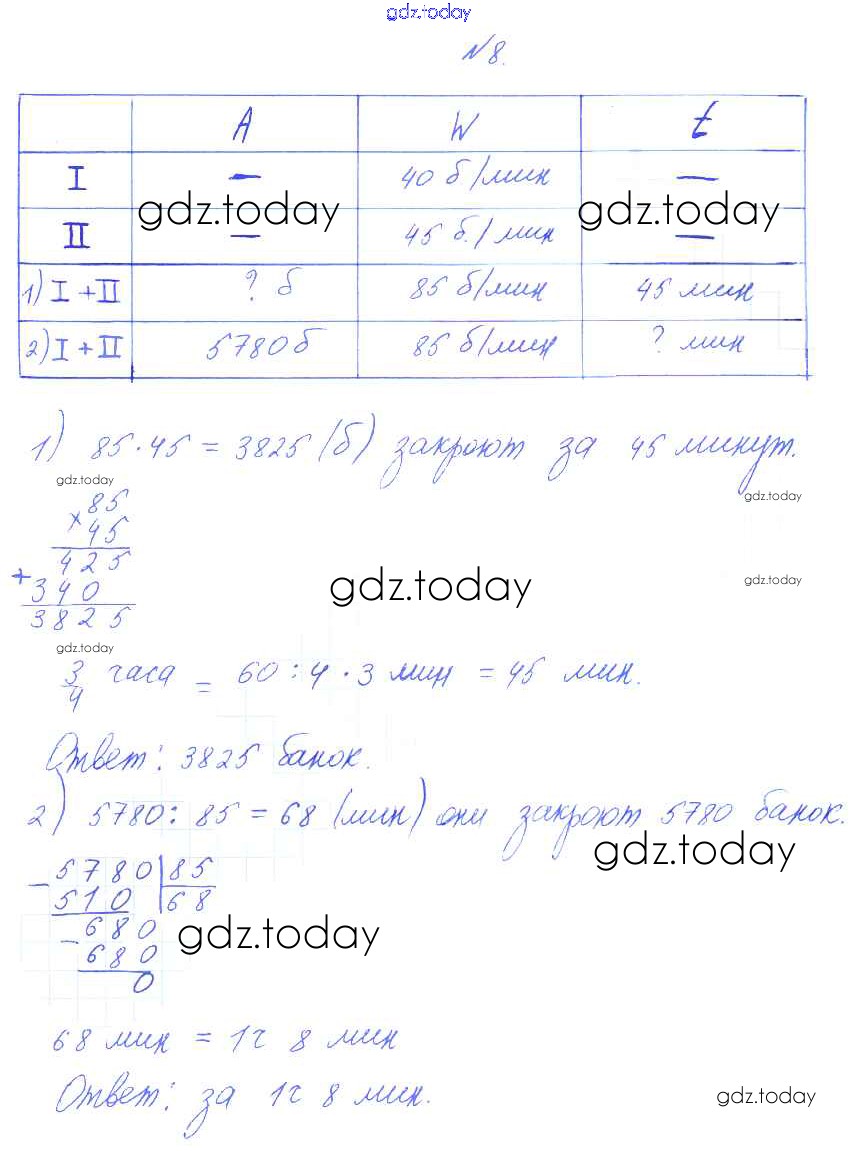 gdz.today
№8.
A W t
I — 40 б/мин —
gdz.today gdz.today
II — 45 б./мин —
1) I + II ? б 85 б/мин 45 мин
2) I + II 5780 б 85 б/мин ? мин
1) 85 · 45 = 3825 (б) закроют за 45 минут.
gdz.today gdz.today
× 85
45
425
gdz.today gdz.today
+ 340
3825
gdz.today
3/4 часа = 60 : 4 · 3 мин = 45 мин.
Ответ: 3825 банок.
2) 5780 : 85 = 68 (мин) они закроют 5780 банок.
gdz.today
- 5780 | 85
510 68
- 680
gdz.today
680
0
68 мин = 1ч 8 мин
Ответ: за 1ч 8 мин.
gdz.today